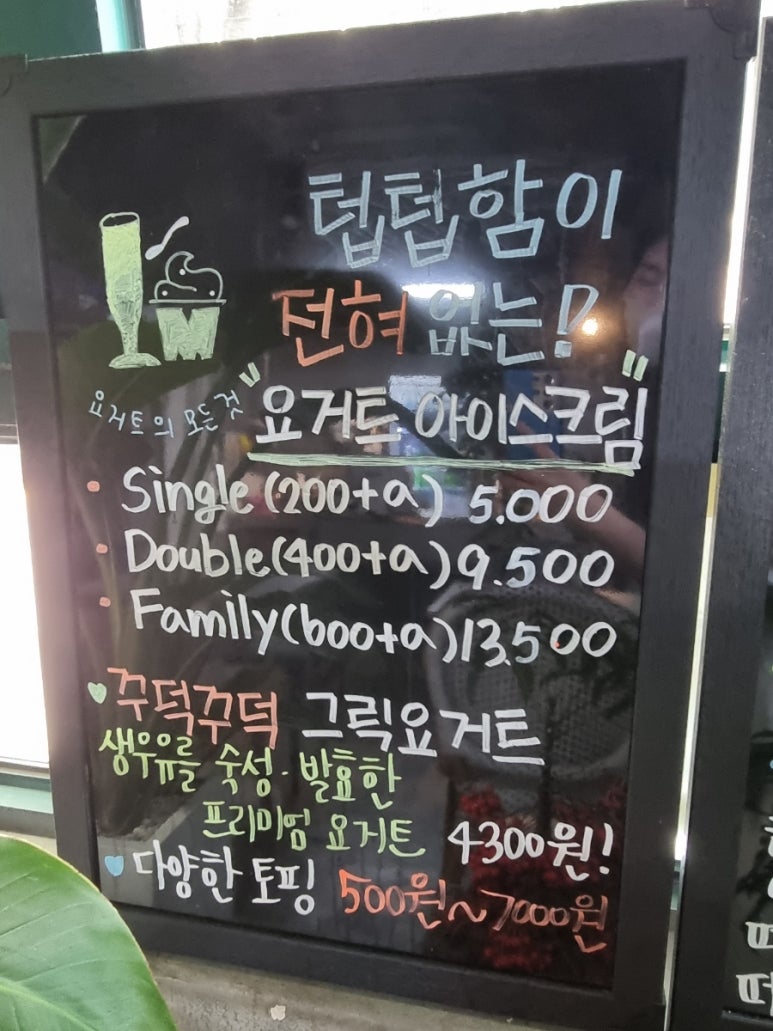 텁텁함이
전혀 없는!
요거트의 모든것 "요거트 아이스크림"
Single (200+a) 5.000
Double (400+a) 9.500
Family (600+a) 13.500
꾸덕꾸덕 그릭요거트
생우유를 숙성·발효한
프리미엄 요거트 4300원!
다양한 토핑 500원~7000원